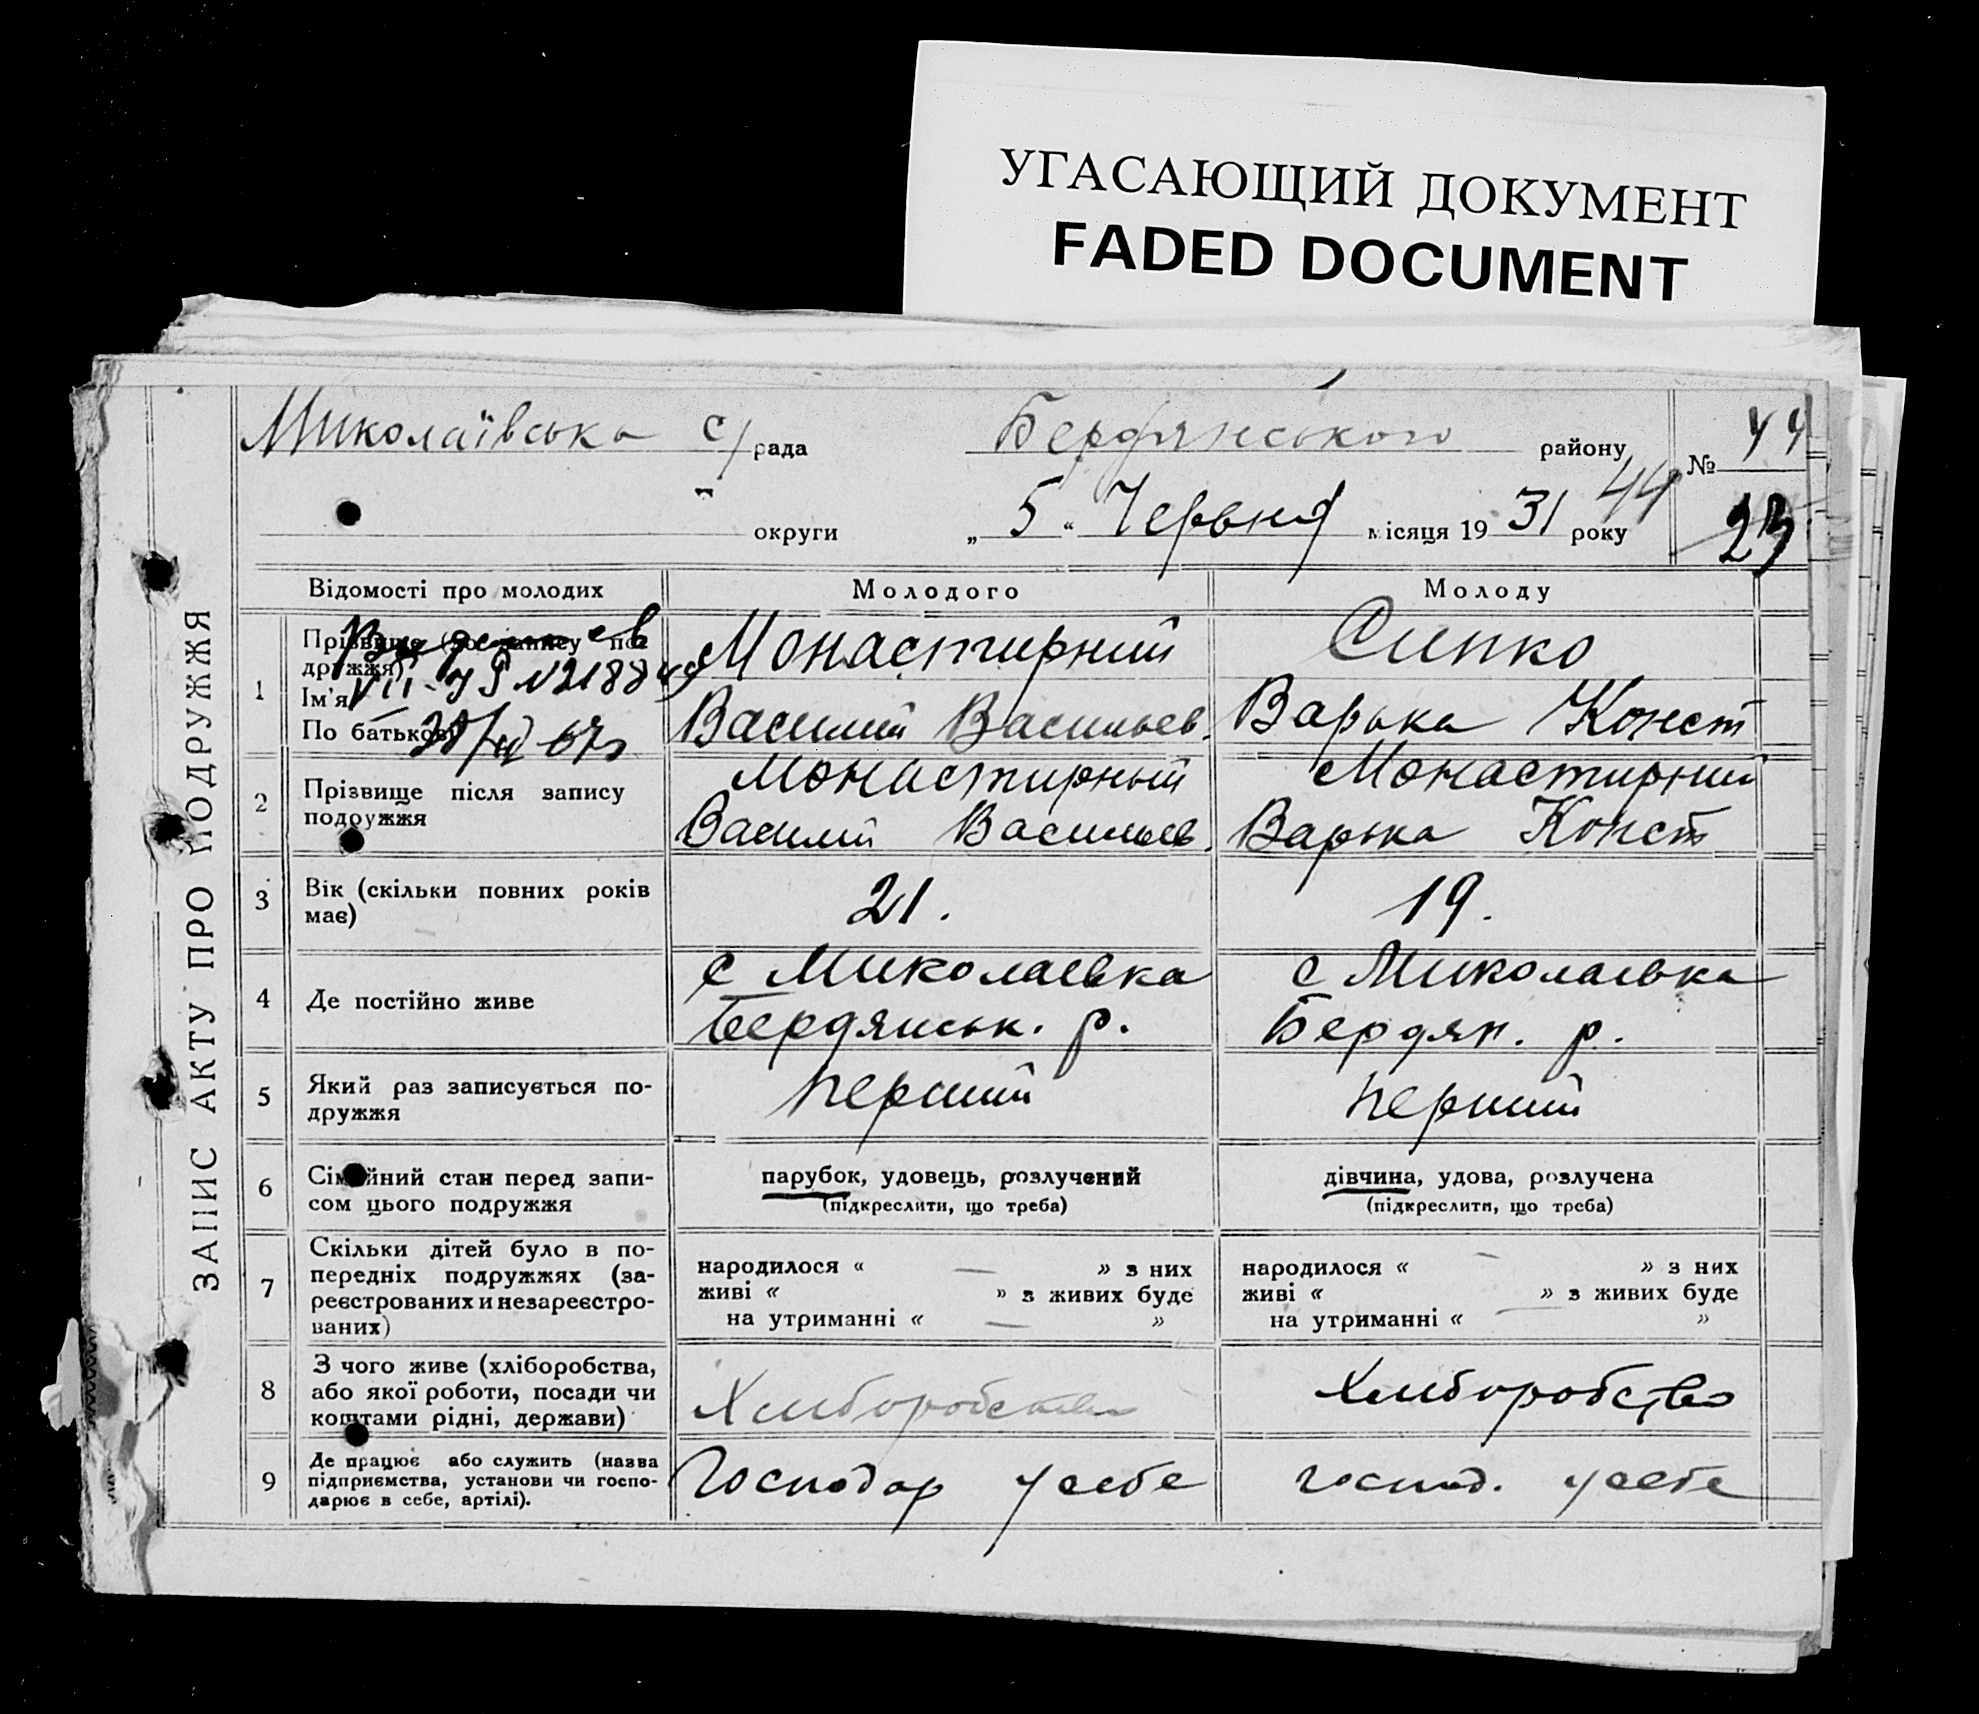 УГАСАЮЩИЙ ДОКУМЕНТ
FADED DOCUMENT
Миколаївська с/рада Бердянського району № 44
44
округи „ 5 “ Червня місяця 1931 року 23
ЗАПИС АКТУ ПРО ПОДРУЖЖЯ
Відомості про молодих Молодого Молоду
1 Прізвище (до запису подружжя) Монастирний Сипко
VII-ЯЯ №
Ім'я
По батькові Василий Васильев. Варька Конст
67
2 Прізвище після запису подружжя Монастирный Монастирний
Василий Васильев. Варька Конст
3 Вік (скільки повних років має) 21. 19.
4 Де постійно живе с Миколаевка с Миколаевка
Бердянськ. р. Бердян. р.
5 Який раз записується подружжя перший перший
6 Сімейний стан перед записом цього подружжя парубок, удовець, розлучений дівчина, удова, розлучена
(підкреслити, що треба) (підкреслити, що треба)
7 Скільки дітей було в попередніх подружжях (зареєстрованих и незареєстрованих)
народилося « — » з них народилося « — » з них
живі « » з живих буде живі « » з живих буде
на утриманні « — » на утриманні « — »
8 З чого живе (хліборобства, або якої роботи, посади чи коштами рідні, держави) Хлиборобство Хлиборобство
9 Де працює або служить (назва підприємства, установи чи господарює в себе, артілі). Господар у себе господ. у себе